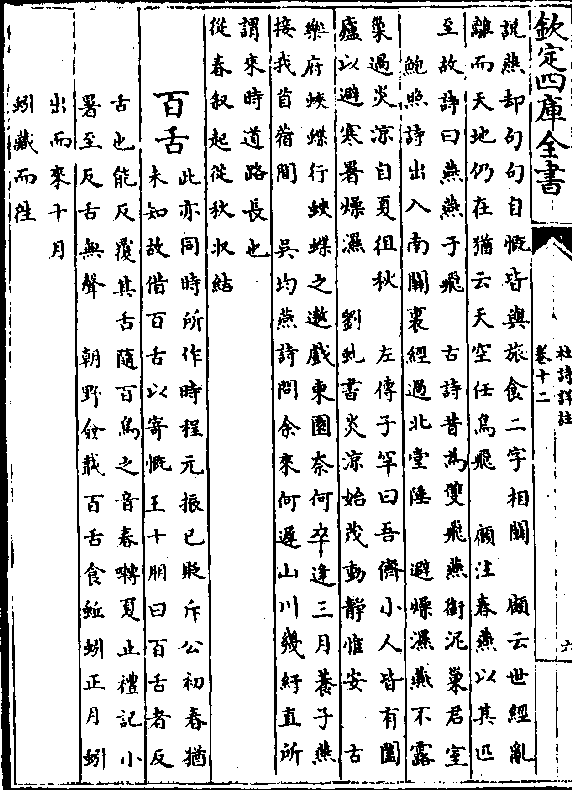 欽定四庫全書
杜詩詳註
卷十二
六
說燕却句句自慨皆與旅食二字相關　顧云世經亂
離而天地仍在猶云天空任鳥飛　顧注春燕以其匹
至故詩曰燕燕于飛　古詩昔為雙飛燕銜泥巢君室
鮑照詩出入南閨裏經過北堂陲　避燥濕燕不露
巢過炎涼自夏徂秋　左傳子罕曰吾儕小人皆有闔
廬以避寒暑燥濕　劉虬書炎涼始茂動靜惟安　古
樂府蛺蝶行蛺蝶之遨戲東園奈何卒逢三月養子燕
接我苜蓿間　吳均燕詩問余來何遲山川幾紆直所
謂來時道路長也
從春叙起從秋收結
百舌
此亦同時所作時程元振已貶斥公初春猶
未知故借百舌以寄慨王十朋曰百舌者反
舌也能反覆其舌隨百鳥之音春囀夏止禮記小
暑至反舌無聲　朝野僉載百舌食蚯蚓正月蚓
出而來十月
蚓藏而往